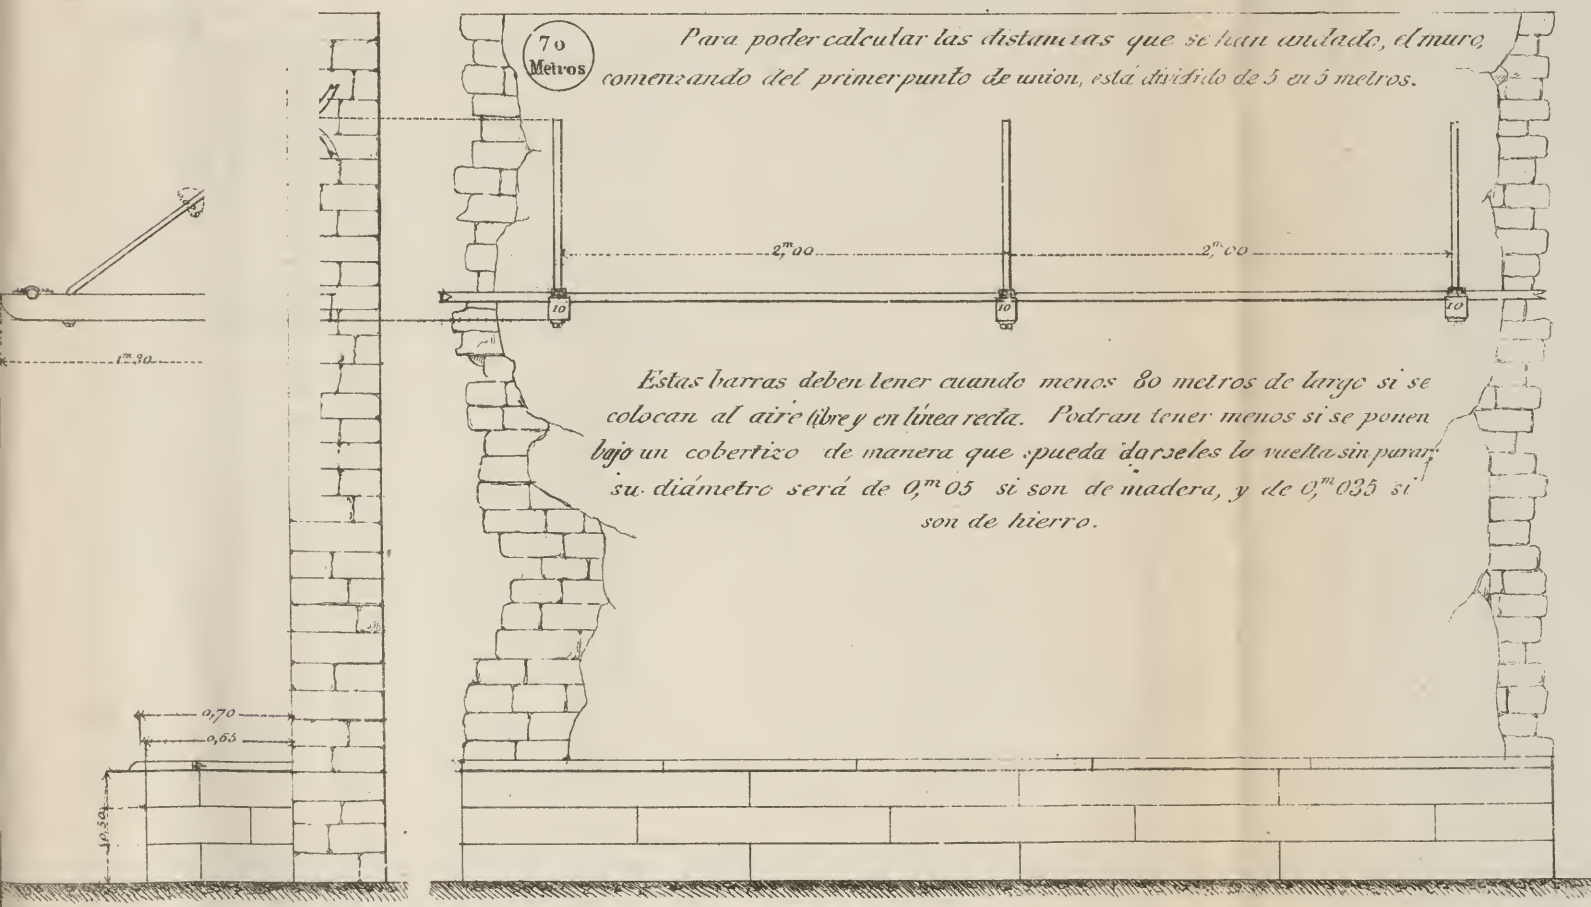 70
Metros
Para poder calcular las distancias que se han andado, el muro,
comenzando del primer punto de union, está dividido de 5 en 5 metros.
2,m00
2,m00
10
10
10
1m30
Estas barras deben tener cuando menos 80 metros de largo si se
colocan al aire libre y en línea recta. Podran tener menos si se ponen
bajo un cobertizo de manera que pueda darseles la vuelta sin parar;
su diámetro será de 0,m05 si son de madera, y de 0,m035 si
son de hierro.
0,70
0,65
0,50